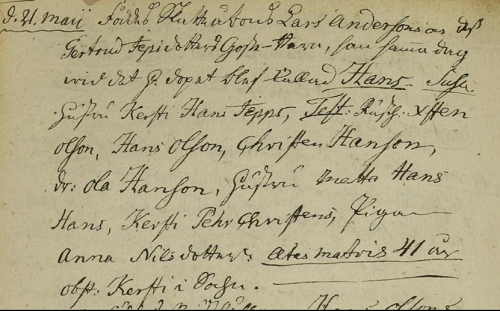 d. 21. Maij Föddes Lars Andersons och dess
Gertrud Jepsdotters Goße-Barn, som samma dag
wid det H. dopet blef kallad Hans. Susc.
Hustru Kersti Hans Jepps, Test:
Olson, Hans Olson, Christen Hanson,
dr: Ola Hanson, Hustru Metta Hans
Hans, Kersti Pehr Christens, Pigan
Anna Nilsdotter. Ætas matris 41 år
obst: Kersti i